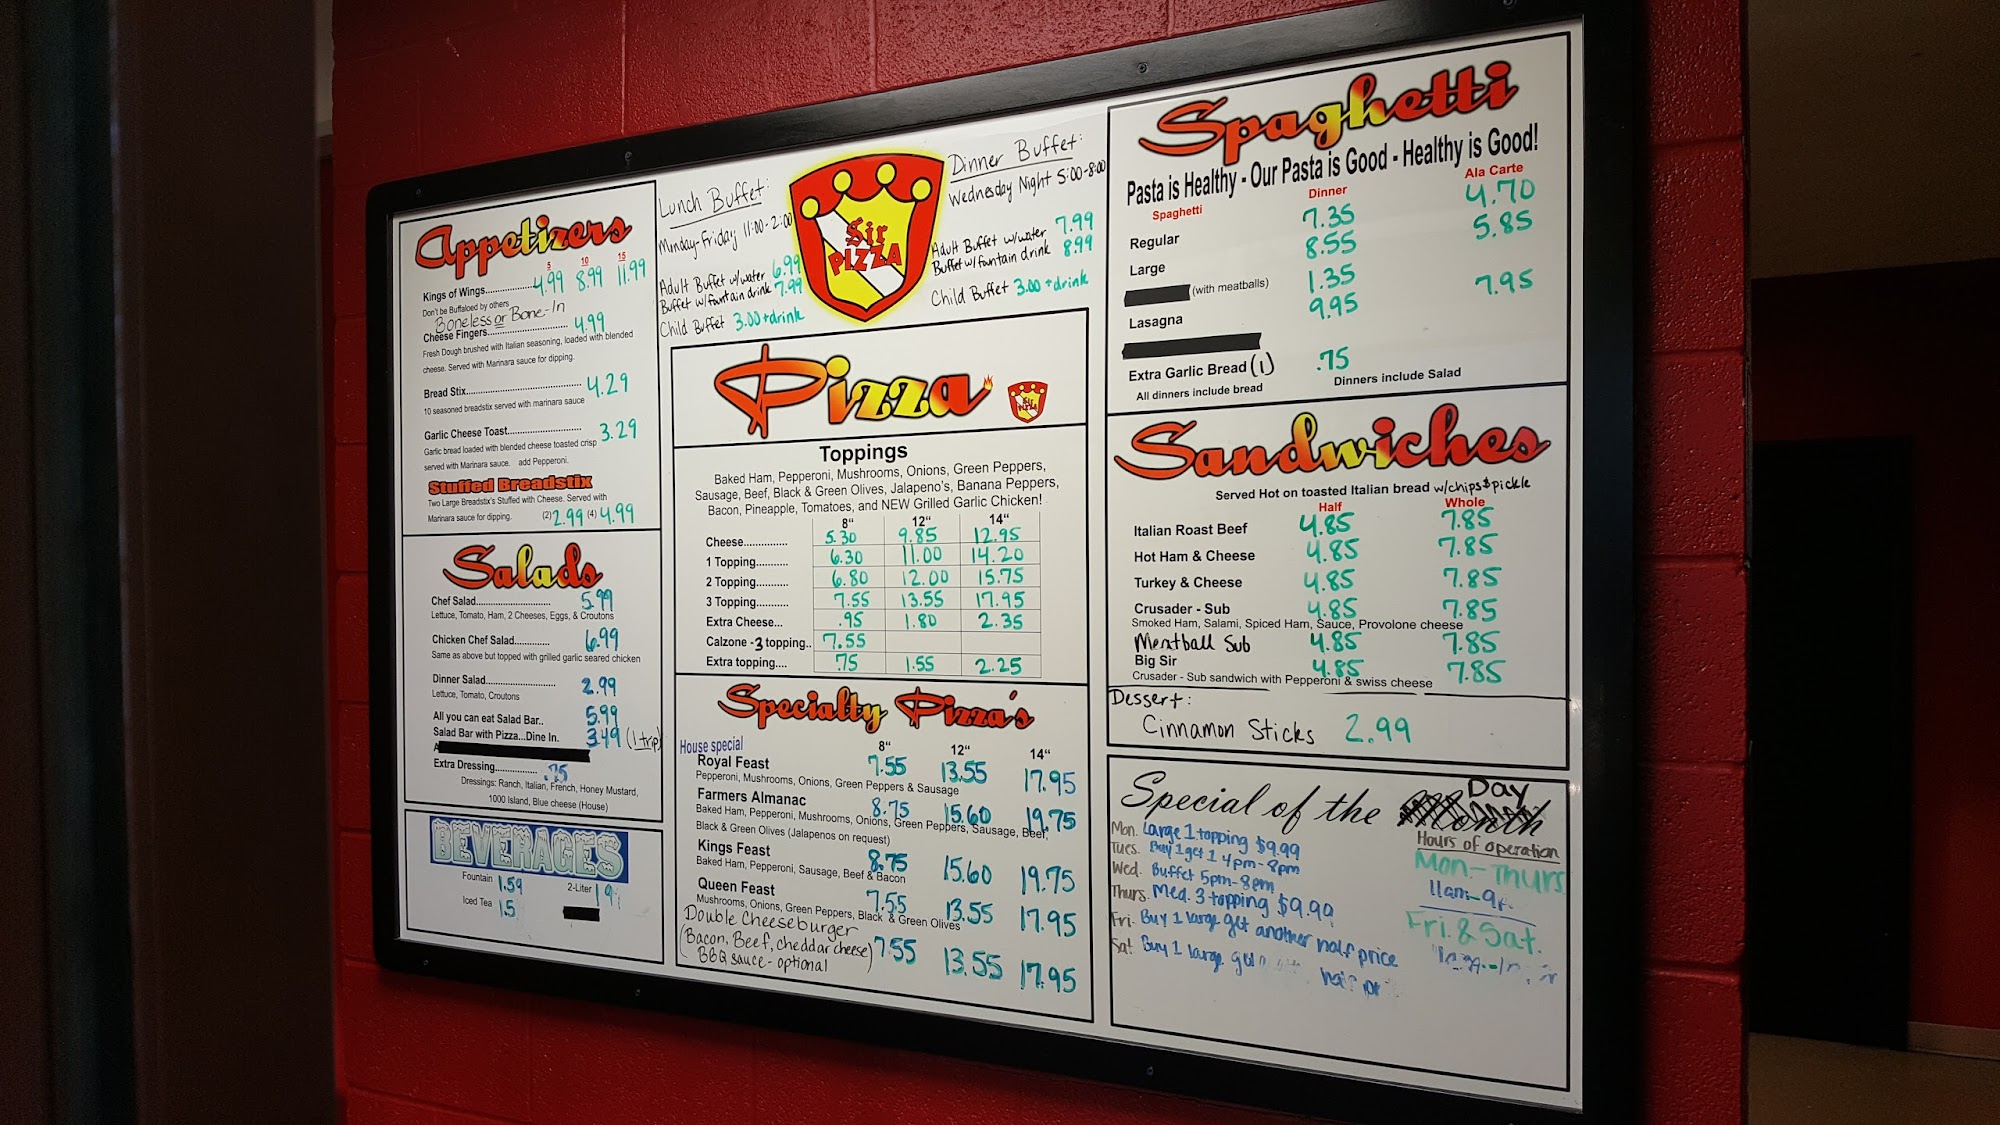 Appetizers
5 10 15
Kings of Wings.................... 4.99 8.99 11.99
Don't be Buffaloed by others
Boneless or Bone-In
Cheese Fingers............................ 4.99
Fresh Dough brushed with Italian seasoning, loaded with blended
cheese. Served with Marinara sauce for dipping.
Bread Stix........................................ 4.29
10 seasoned breadstix served with marinara sauce
Garlic Cheese Toast.......................... 3.29
Garlic bread loaded with blended cheese toasted crisp
served with Marinara sauce. add Pepperoni.
Stuffed Breadstix
Two Large Breadstix's Stuffed with Cheese. Served with
Marinara sauce for dipping. (2) 2.99 (4) 4.99
Salads
Chef Salad............................ 5.99
Lettuce, Tomato, Ham, 2 Cheeses, Eggs, & Croutons
Chicken Chef Salad............. 6.99
Same as above but topped with grilled garlic seared chicken
Dinner Salad.......................... 2.99
Lettuce, Tomato, Croutons
All you can eat Salad Bar.. 5.99
Salad Bar with Pizza...Dine In. 3.49 (1 trip)
A
Extra Dressing................ .75
Dressings: Ranch, Italian, French, Honey Mustard,
1000 Island, Blue cheese (House)
BEVERAGES
Fountain 1.59 2-Liter
Iced Tea
Lunch Buffet:
Munday-Friday 11:00-2:00
Adult Buffet w/water 6.99
Buffet w/fountain drink 7.99
Child Buffet 3.00 + drink
Sir
PIZZA
Dinner Buffet:
Wednesday Night 5:00-8:00
Adult Buffet w/water 7.99
Buffet w/fountain drink 8.99
Child Buffet 3.00 + drink
Pizza
Sir
PIZZA
Toppings
Baked Ham, Pepperoni, Mushrooms, Onions, Green Peppers,
Sausage, Beef, Black & Green Olives, Jalapeno's, Banana Peppers,
Bacon, Pineapple, Tomatoes, and NEW Grilled Garlic Chicken!
8" 12" 14"
Cheese............... 5.30 9.85 12.95
1 Topping........... 6.30 11.00 14.20
2 Topping........... 6.80 12.00 15.75
3 Topping........... 7.55 13.55 17.95
Extra Cheese... .95 1.80 2.35
Calzone -3 topping.. 7.55
Extra topping.... .75 1.55 2.25
Specialty Pizza's
House special 8" 12" 14"
Royal Feast 7.55 13.55 17.95
Pepperoni, Mushrooms, Onions, Green Peppers & Sausage
Farmers Almanac 8.75 15.60 19.75
Baked Ham, Pepperoni, Mushrooms, Onions, Green Peppers, Sausage, Beef,
Black & Green Olives (Jalapenos on request)
Kings Feast 8.75 15.60 19.75
Baked Ham, Pepperoni, Sausage, Beef & Bacon
Queen Feast 7.55 13.55 17.95
Mushrooms, Onions, Green Peppers, Black & Green Olives
Double Cheeseburger
(Bacon, Beef, cheddar cheese) 7.55 13.55 17.95
BBQ sauce - optional
Spaghetti
Pasta is Healthy - Our Pasta is Good - Healthy is Good!
Spaghetti Dinner Ala Carte
Regular 7.35 4.70
Large 8.55 5.85
(with meatballs) 1.35
Lasagna 9.95 7.95
Extra Garlic Bread (1) .75
All dinners include bread Dinners include Salad
Sandwiches
Served Hot on toasted Italian bread w/chips & pickle
Half Whole
Italian Roast Beef 4.85 7.85
Hot Ham & Cheese 4.85 7.85
Turkey & Cheese 4.85 7.85
Crusader - Sub 4.85 7.85
Smoked Ham, Salami, Spiced Ham, Sauce, Provolone cheese
Meatball Sub 4.85 7.85
Big Sir 4.85 7.85
Crusader - Sub sandwich with Pepperoni & swiss cheese
Dessert:
Cinnamon Sticks 2.99
Special of the Day
Mon. Large 1 topping $9.99
Tues. Buy 1 get 1 4pm-8pm
Wed. Buffet 5pm-8pm
Thurs. Med. 3 topping $9.99
Fri. Buy 1 large get another half price
Sat. Buy 1 large
Hours of operation
Mon-Thurs
11am-9
Fri. & Sat.